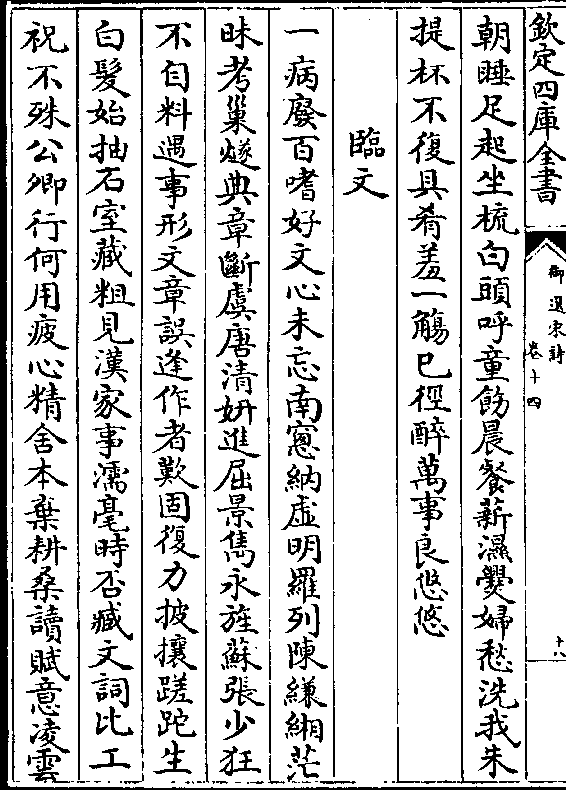 欽定四庫全書
御選宋詩
卷十四
十八
朝睡足起坐梳白頭呼童飭晨餐薪濕爨婦愁洗我朱
提杯不復具肴羞一觴已徑醉萬事良悠悠
臨文
一病廢百嗜好文心未忘南窻納虛明羅列陳縑緗茫
昧考巢燧典章斷虞唐清妍進屈景雋永旌蘇張少狂
不自料遇事形文章誤逢作者歎固復力披攘蹉跎生
白髮始抽石室藏粗見漢家事濡毫時否臧文詞比工
祝不殊公卿行何用疲心精舍本棄耕桑讀賦意凌雲